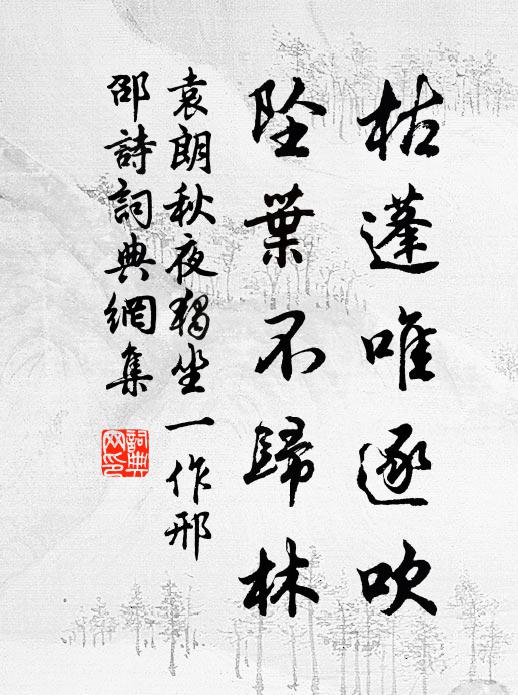 枯蓬唯逐吹
坠葉不歸林
袁朗秋夜獨坐一作邢
邵詩詞典網集
詞典
网印